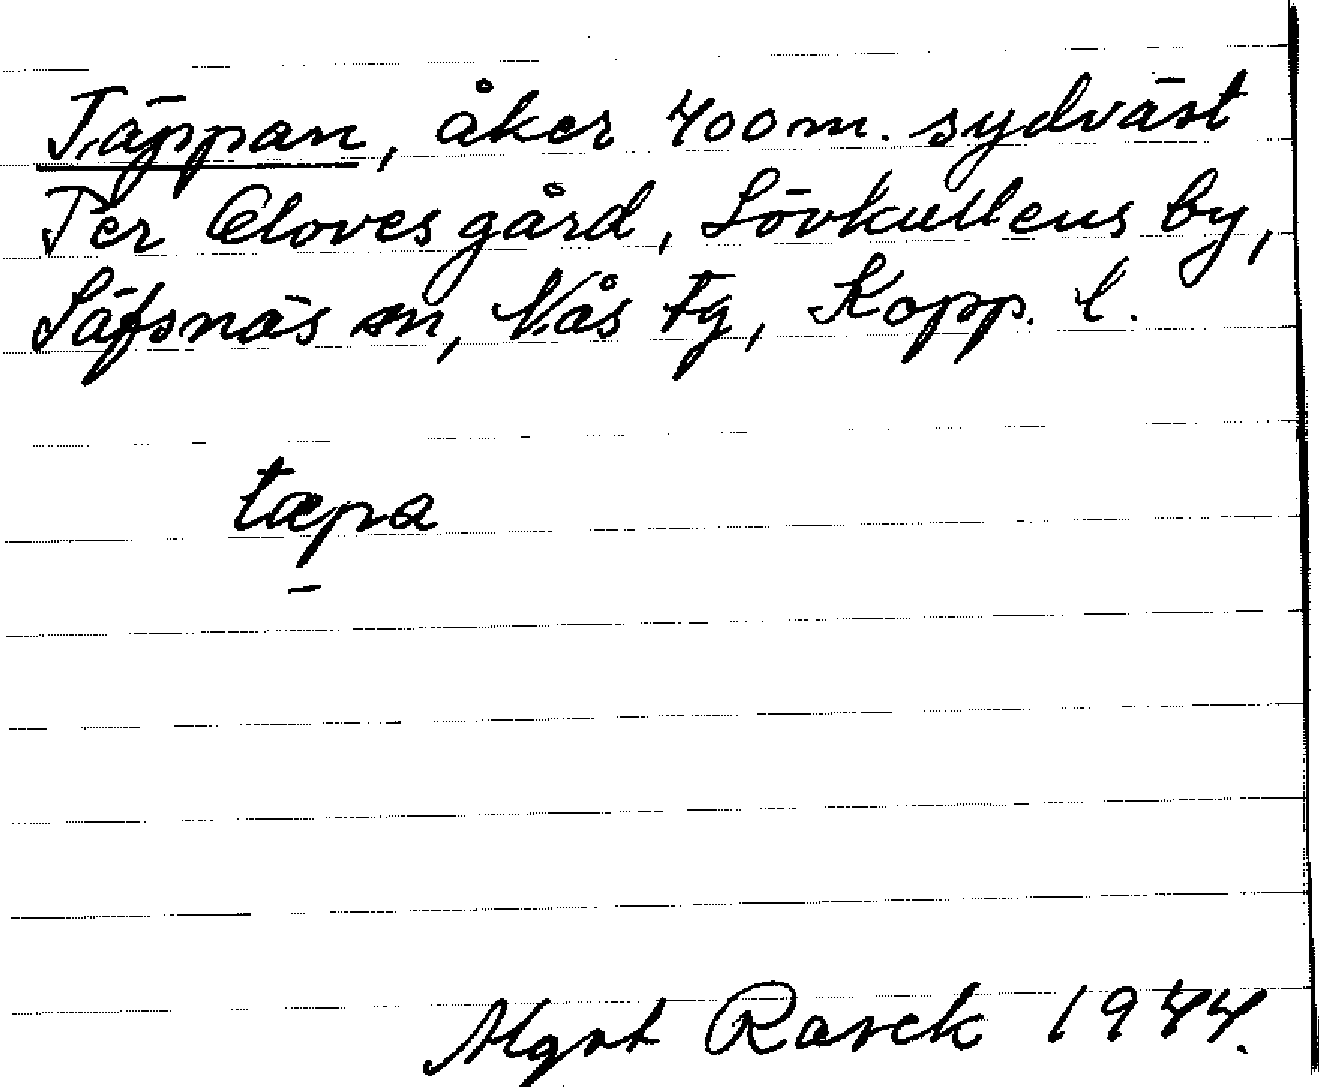 Täppan, åker 400m. sydväst
Per Oloves gård, Lövkullens by,
Säfsnäs sn, Nås Fg, Kopp. l.
tæpa
Algot Rasck 1944.